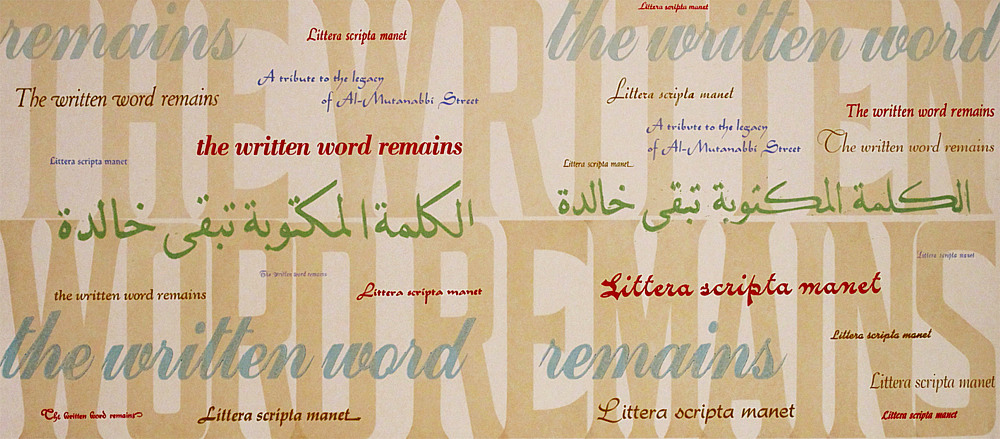 Littera scripta manet
remains
the written word
Littera scripta manet
THE WRITTEN
A tribute to the legacy
of Al-Mutanabbi Street
The written word remains
Littera scripta manet
The written word remains
A tribute to the legacy
of Al-Mutanabbi Street
the written word remains
The written word remains
Littera scripta manet
Littera scripta manet
الكلمة المكتوبة تبقى خالدة
الكلمة المكتوبة تبقى خالدة
WORD REMAINS
Littera scripta manet
The written word remains
the written word remains
Littera scripta manet
Littera scripta manet
the written word
remains
Littera scripta manet
Littera scripta manet
The written word remains
Littera scripta manet
Littera scripta manet
Littera scripta manet